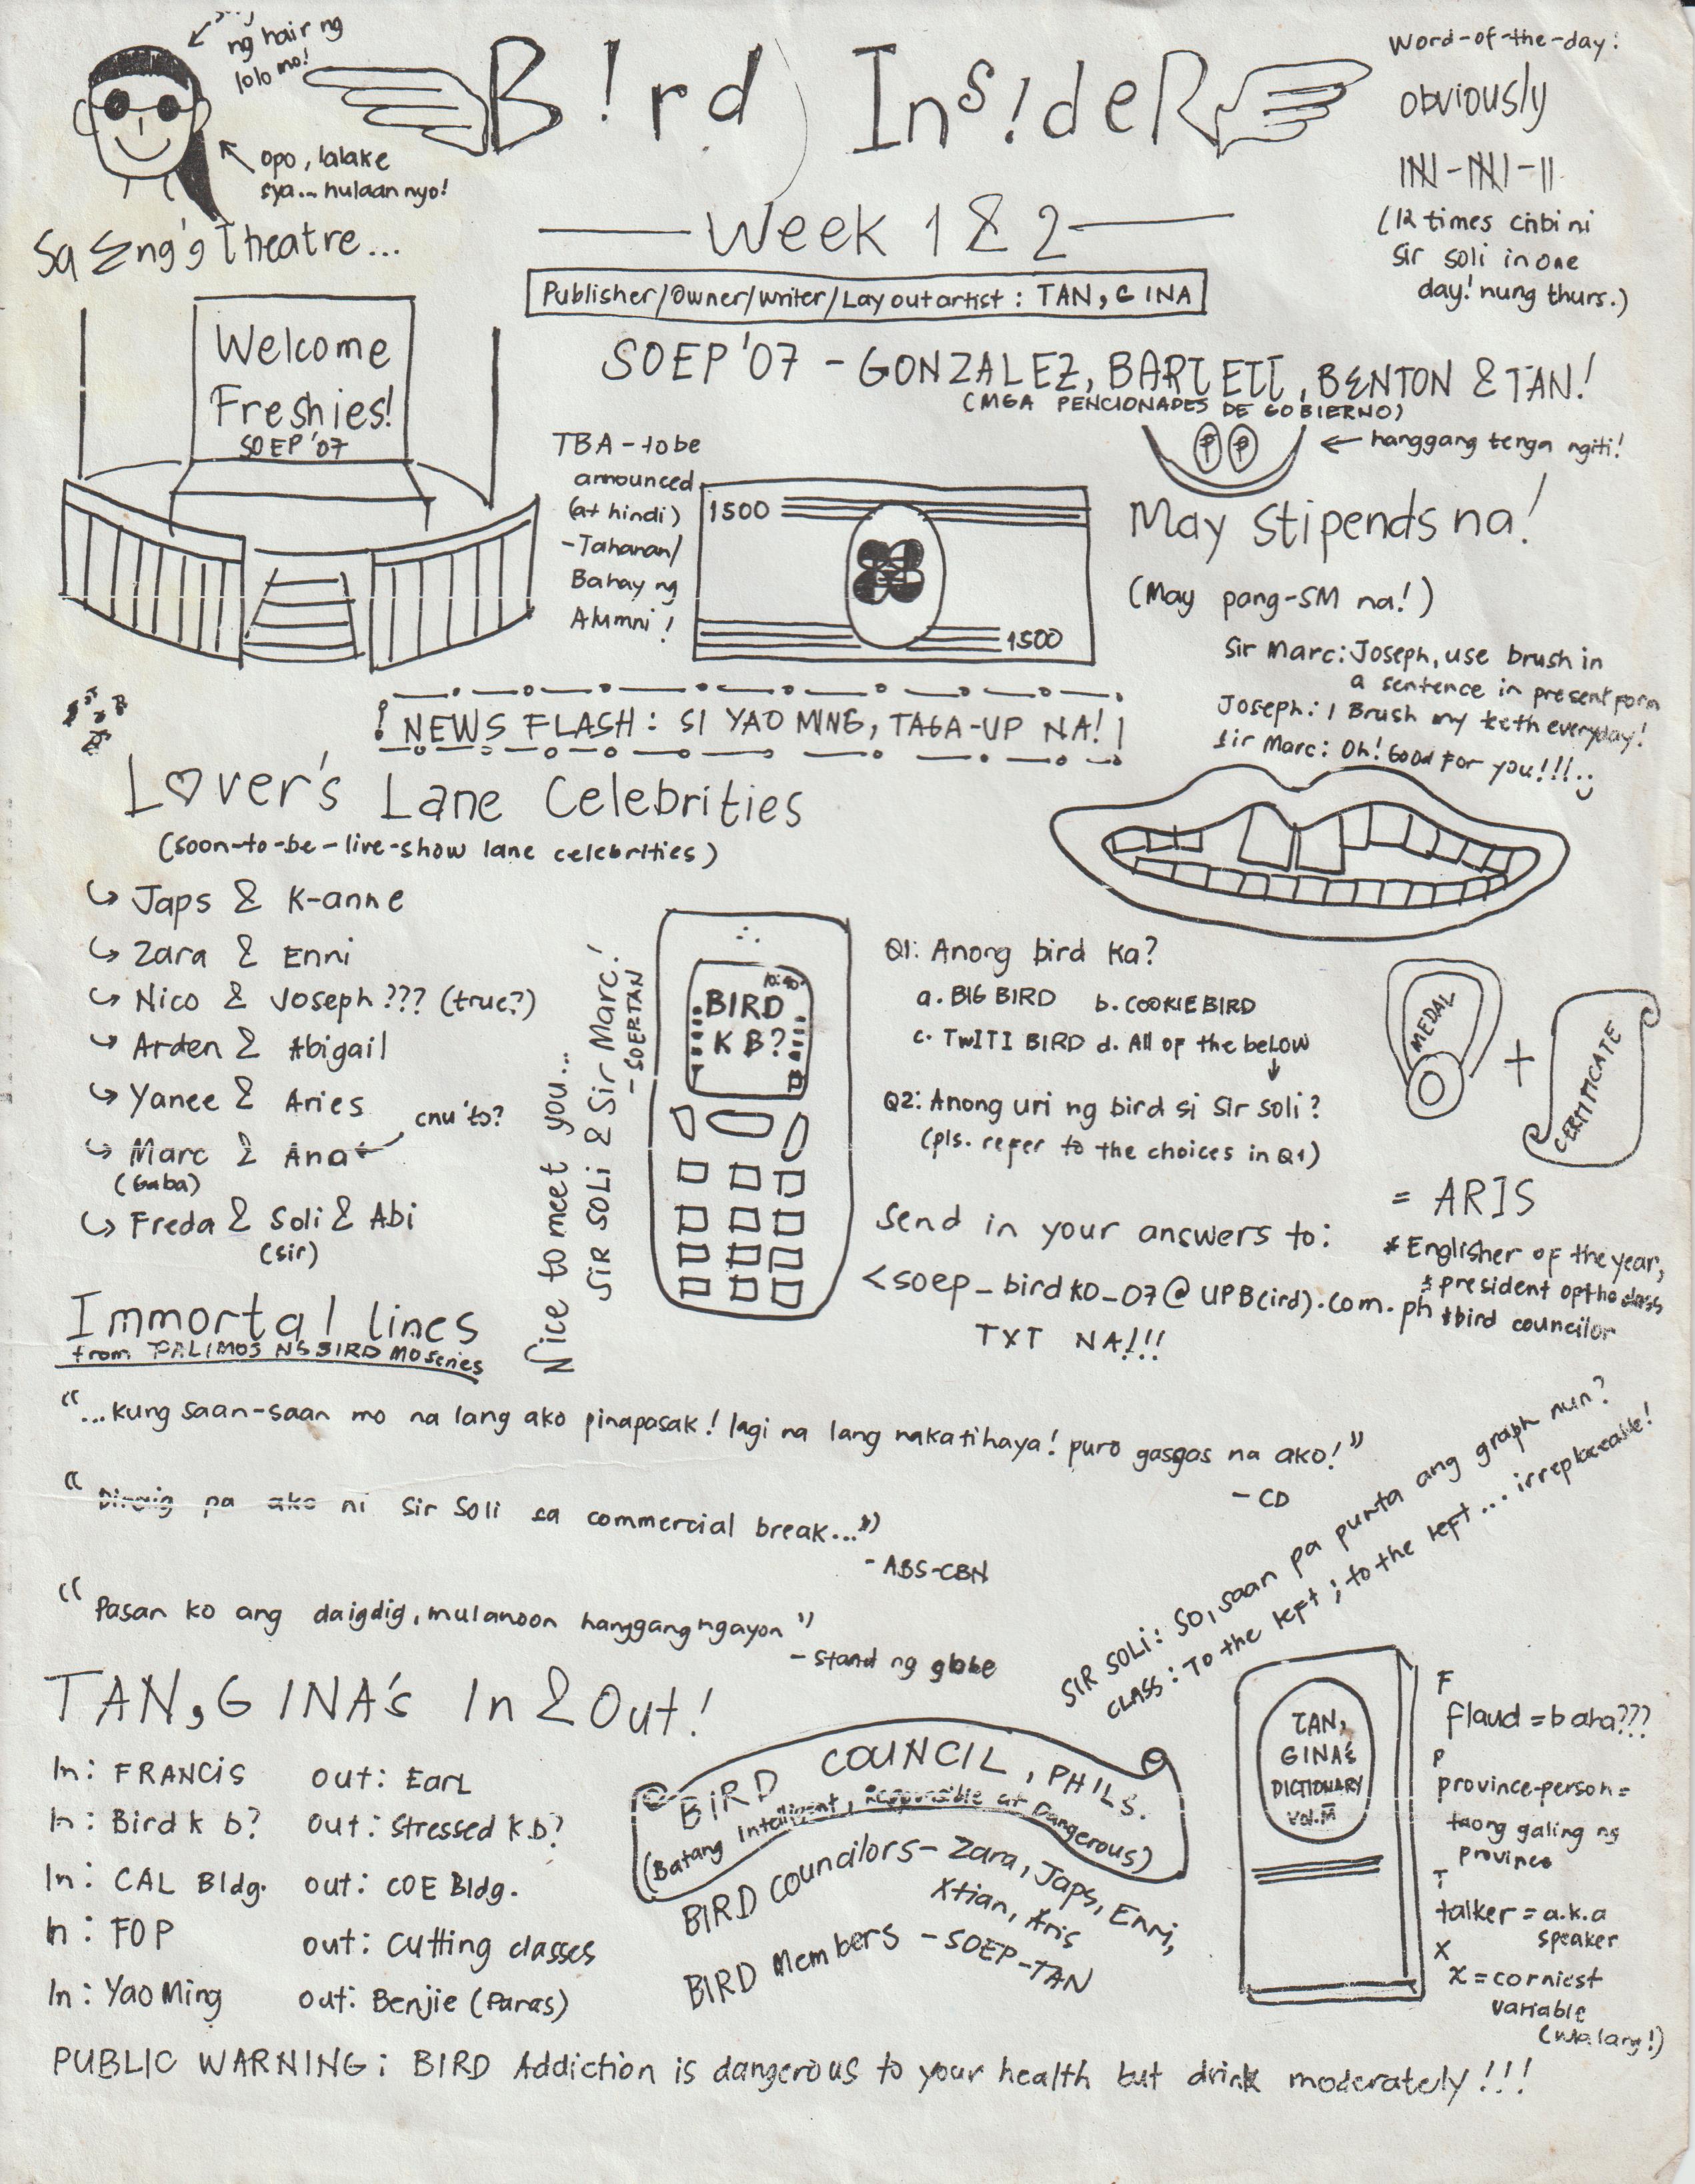 ng hair ng
lolo mo!
opo, lalake
sya... hulaan nyo!
B!rd Ins!deR
Week 1 & 2
Publisher/Owner/writer/Layout artist : TAN, G INA
Word-of-the-day:
obviously
(12 times cnbi ni
Sir Soli in one
day! nung thurs.)
Sa Eng'g Theatre...
Welcome
Freshies!
SOEP '07
SOEP '07 - GONZALEZ, BARTLETT, BENTON & TAN!
(MGA PENCIONADES DE GOBIERNO)
P P
hanggang tenga ngiti!
TBA - to be
announced
(at hindi)
-Tahanan/
Bahay ng
Alumni!
1500
1500
May Stipends na!
(May pang-SM na!)
Sir Marc: Joseph, use brush in
a sentence in present form
Joseph: I Brush my teeth everyday!
Sir Marc: Oh! Good For you!!!
! NEWS FLASH: SI YAO MING, TAGA-UP NA! !
Lover's Lane Celebrities
(soon-to-be-live-show lane celebrities)
Japs & K-anne
Zara & Enni
Nico & Joseph??? (true?)
Arden & Abigail
Yanee & Aries
Marc & Ana
(Gaba)
cnu 'to?
Freda & Soli & Abi
(sir)
Nice to meet you...
SIR SOLI & Sir Marc!
- SOEPTAN
10:40
BIRD
K B?
Q1: Anong bird ka?
a. BIG BIRD b. COOKIE BIRD
c. TWITI BIRD d. All of the beLOW
Q2: Anong uri ng bird si Sir Soli?
(pls. refer to the choices in Q1)
Send in your answers to:
<soep_birdko_07@UPB(ird).com.ph
TXT NA!!!
MEDAL
+
CERTIFICATE
= ARIS
* Englisher of the year,
* president op tha class
* bird councilor
Immortal lines
from PALIMOS NG BIRD MO series
"...kung saan-saan mo na lang ako pinapasak! lagi na lang nakatihaya! puro gasgas na ako!"
- CD
"Dinaig pa ako ni Sir Soli sa commercial break..."
- ABS-CBN
"Pasan ko ang daigdig, mula noon hanggang ngayon"
- stand ng globe
SIR SOLI: SO, saan pa punta ang graph nun?
CLASS: To the left; to the left... irreplaceable!
TAN, G INA's In & Out!
In: FRANCIS out: EarL
In: Bird k b? out: Stressed k b?
In: CAL Bldg. out: COE Bldg.
In: FOP out: Cutting classes
In: Yao Ming out: Benjie (Paras)
BIRD COUNCIL, PHILS.
(Batang Intelligent, Responsible at Dangerous)
BIRD councilors - Zara, Japs, Enni,
Xtian, Aris
BIRD Members - SOEP-TAN
TAN,
GINA's
DICTIONARY
F
flaud = baha???
P
province-person =
taong galing ng
province
T
talker = a.k.a
speaker
X
x = corniest
variable
(wala lang!)
PUBLIC WARNING: BIRD Addiction is dangerous to your health but drink moderately!!!